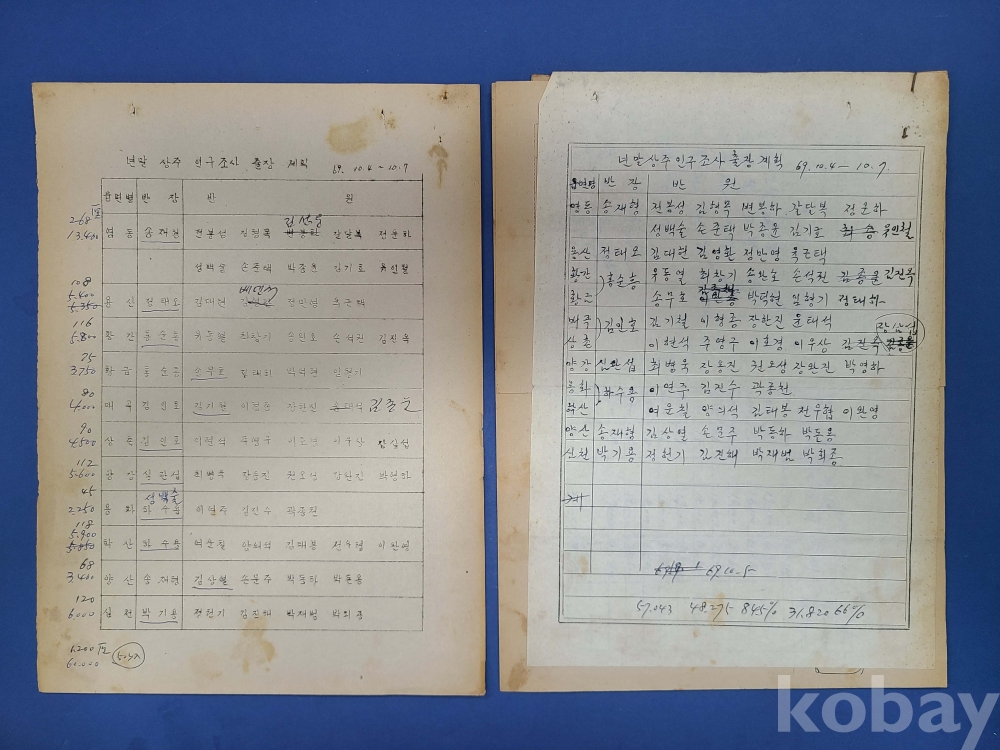 년말 상주 인구조사 출장 계획 69. 10.4 - 10.7
읍면별 반장 반 원
268
13.400
김선동
영동 송재형 전봉성 김형목 갈달복 정운하
성백술 손준택 박종윤 김기호 유인철
108
5.400
5.350
용산 정태오 김대현 정반영 육근택
116
5.800
황간 홍순흥 유동열 최창기 손찬호 손석진 김진옥
75
3.750
황금 홍순흥 송무호 박덕현 임형기
80
4.000
매곡 김인호 김기철 이형종 장한진 윤태석 김종윤
90
4.500
상촌 김인호 이현석 주영구 이호경 이우상
112
5.600
양강 신관섭 최병욱 장용진 권오성 장완진 박영하
45
성백술
2.250
용화 하수용 이영주 김진수 곽종천
118
5.900
5.850
학산 하수용 여운칠 양의석 김태봉 전우협 이완영
68
3.400
양산 송재형 김상열 손문주 박동하 박돈용
120
6000
심천 박기용 정헌기 김진해 박재범 박희종
1.200
60.000
50%
년말상주인구조사 출장계획 69.10.4 - 10.7
읍면명 반 장 반 원
영동 송재형 전봉성 김형목 변봉하 갈달복 정운하
성백술 손준택 박종윤 김기호 유인철
용산 정태오 김대현 김영환 정반영 육근택
황간 홍순흥 유동열 최창기 손찬호 손석진 김종윤 김진옥
황금 송무호 박덕현 임형기 정태하
장삼섭
매곡 김인호 김기철 이형종 장한진 윤태석
상촌 이현석 주영구 이호경 이우상 김진옥
양강 신관섭 최병욱 장용진 권오성 장완진 박영하
용화 하수용 이영주 김진수 곽종천
학산 여운칠 양의석 김태봉 전우협 이완영
양산 송재형 김상열 손문주 박동하 박돈용
심천 박기용 정헌기 김진해 박재범 박희종
계
69.10.5
57.043 48.275 84.5% 31.820 66%
kobay